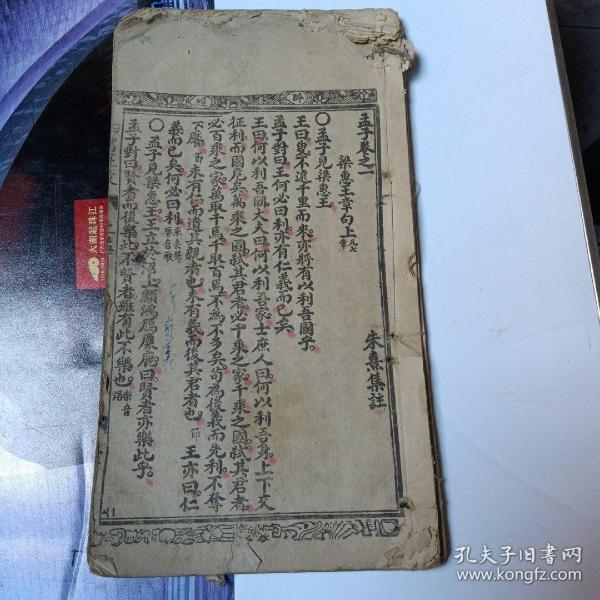 孟子卷之一
梁惠王章句上 凡七章
朱熹集註
〇孟子見梁惠王
王曰叟不遠千里而來亦將有以利吾國乎
孟子對曰王何必曰利亦有仁義而已矣
王曰何以利吾國大夫曰何以利吾家士庶人曰何以利吾身上下交
征利而國危矣萬乘之國弒其君者必千乘之家千乘之國弒其君者
必百乘之家萬取千焉千取百焉不為不多矣苟為後義而先利不奪
不饜 未有仁而遺其親者也未有義而後其君者也 王亦曰仁
義而已矣何必曰利
〇孟子見梁惠王王立於沼上顧鴻鴈麋鹿曰賢者亦樂此乎
孟子對曰賢者而後樂此不賢者雖有此不樂也 樂音洛
大潮起珠江
孔夫子旧书网
www.kongfz.com